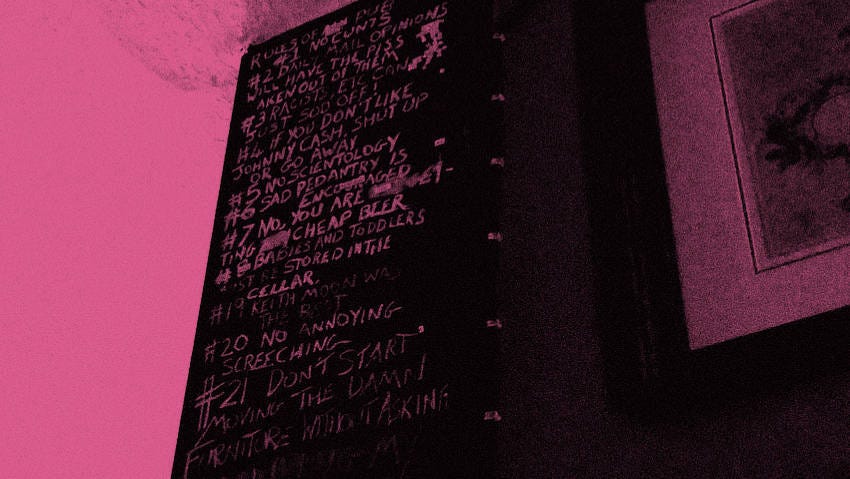 RULES OF
#1 NO CUNTS
#2 DAILY MAIL OPINIONS
WILL HAVE THE PISS
AKEN OUT OF THEM
#3 RACISTS ETC CAN
JUST SOD OFF!
#4 IF YOU DON'T LIKE
JOHNNY CASH, SHUT UP
OR GO AWAY
#5 NO SCIENTOLOGY
#6 SAD PEDANTRY IS
ENCOURAGED
#7 NO, YOU ARE
TING CHEAP BEER
BABIES AND TODDLERS
UST BE STORED IN THE
CELLAR.
#19 KEITH MOON WAS
THE BEST
#20 NO ANNOYING
SCREECHING
#21 DON'T START
MOVING THE DAMN
FURNITURE WITHOUT ASKING
MY